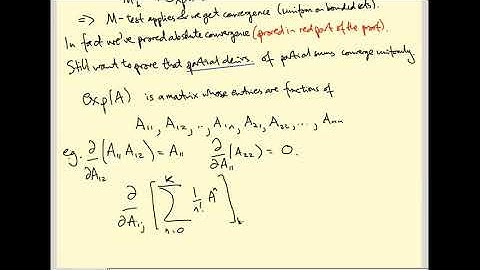 => M-test applies & we get convergence (uniform on bounded sets).
In fact we've proved absolute convergence (proved in red part of the proof).
Still want to prove that partial derivs. of partial sums converge uniformly.
exp(A) is a matrix whose entries are functions of
A₁₁, A₁₂, .., A₁ₙ, A₂₁, A₂₂, ..., Aₙₙ
eg. ∂/∂A₁₂ (A₁₁ A₁₂) = A₁₁ ∂/∂A₁₁ (A₂₂) = 0.
∂/∂Aᵢⱼ [ Σ_{n=0}^{K} 1/n! Aⁿ ]